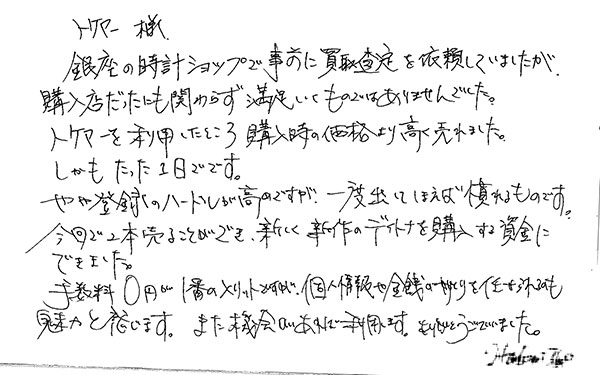 トケマー 様
銀座の時計ショップで事前に買取査定を依頼していましたが、
購入店だったにも関わらず満足いくものではありませんでした。
トケマーを利用したところ購入時の価格より高く売れました。
しかもたった1日でです。
やや登録のハードルが高めですが、一度出してしまえば慣れるものです。
今回で2本売ることができ、新しく新作のデイトナを購入する資金に
できました。
手数料0円が1番のメリットですが、個人情報や金銭のやりとりを任せられるのも
魅力と感じます。また機会があれば利用します。ありがとうございました。